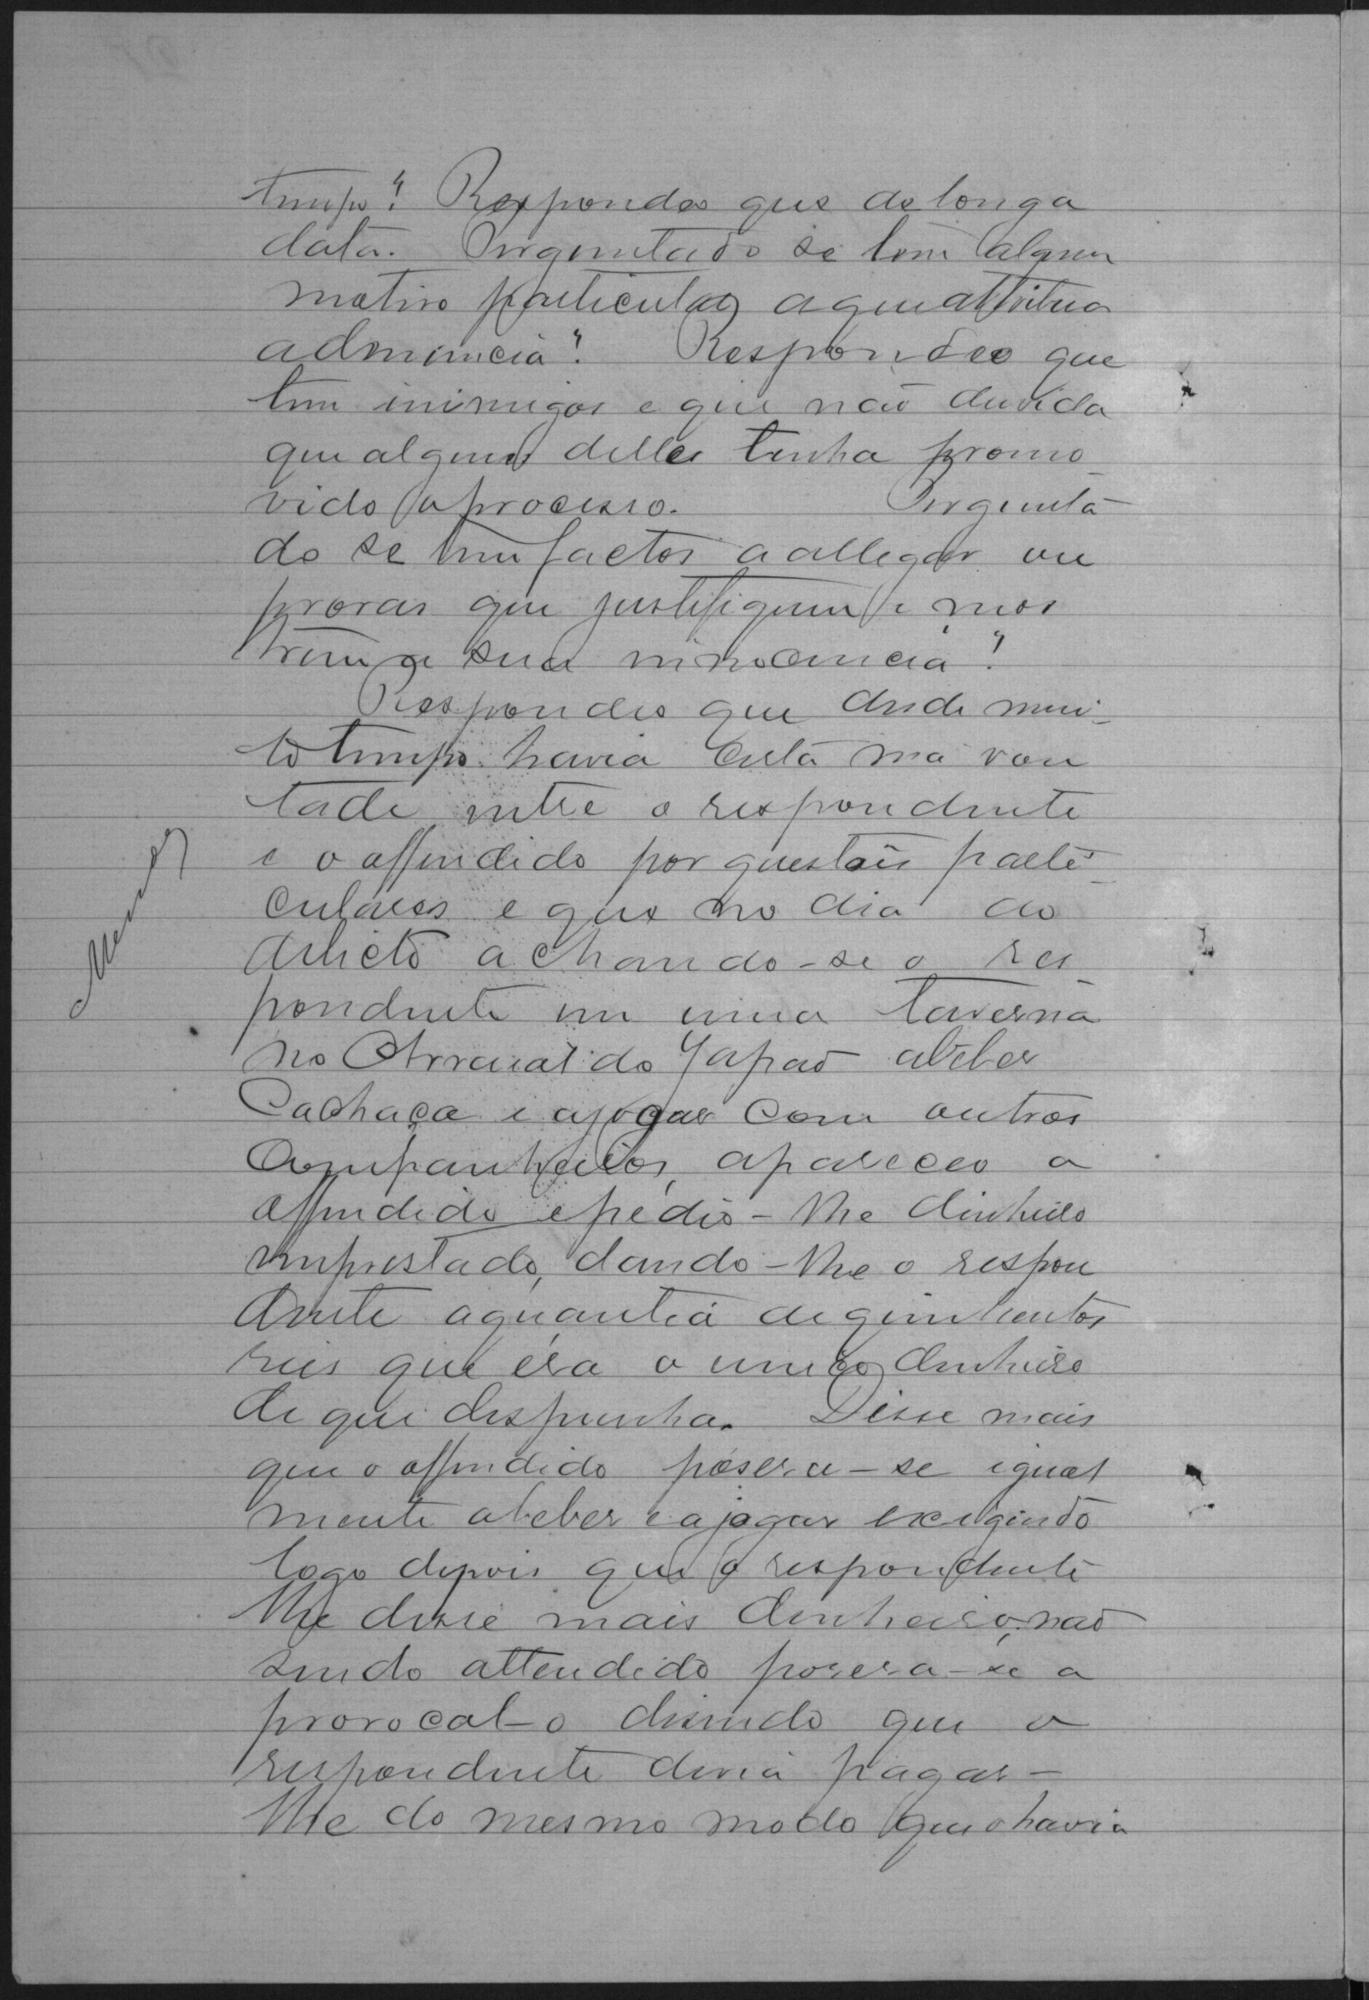 tempo? Respondeo que de longa
data. Perguntado se tem algum
motivo particular a que attribua
a denuncia? Respondeo que
tem inimigos e que não duvida
que algum delles tenha promo
vido o processo. Pergunta
do se tem factos a allegar ou
provas que justifiquem e mos
trem a sua innocencia?
Respondeo que desde mui-
to tempo havia certa má von
tade entre o respondente
e o offendido por questões parti-
culares e que no dia do
delicto achando-se o res
pondente em uma taverna
no Arraial do Japão a beber
Cachaça e a jogar com outros
Companheiros, apareceo o
offendido e pedio-lhe dinheiro
emprestado, dando-lhe o respon
dente a quantia de quinhentos
reis que éra o unico dinheiro
de que despunha. Disse mais
que o offendido posera-se igual
mente a beber e a jogar exegindo
logo depois que o respondente
lhe desse mais dinheiro, não
sendo attendido posera-se a
provocal-o disendo que o
respondente devia pagar-
lhe do mesmo modo que o havia